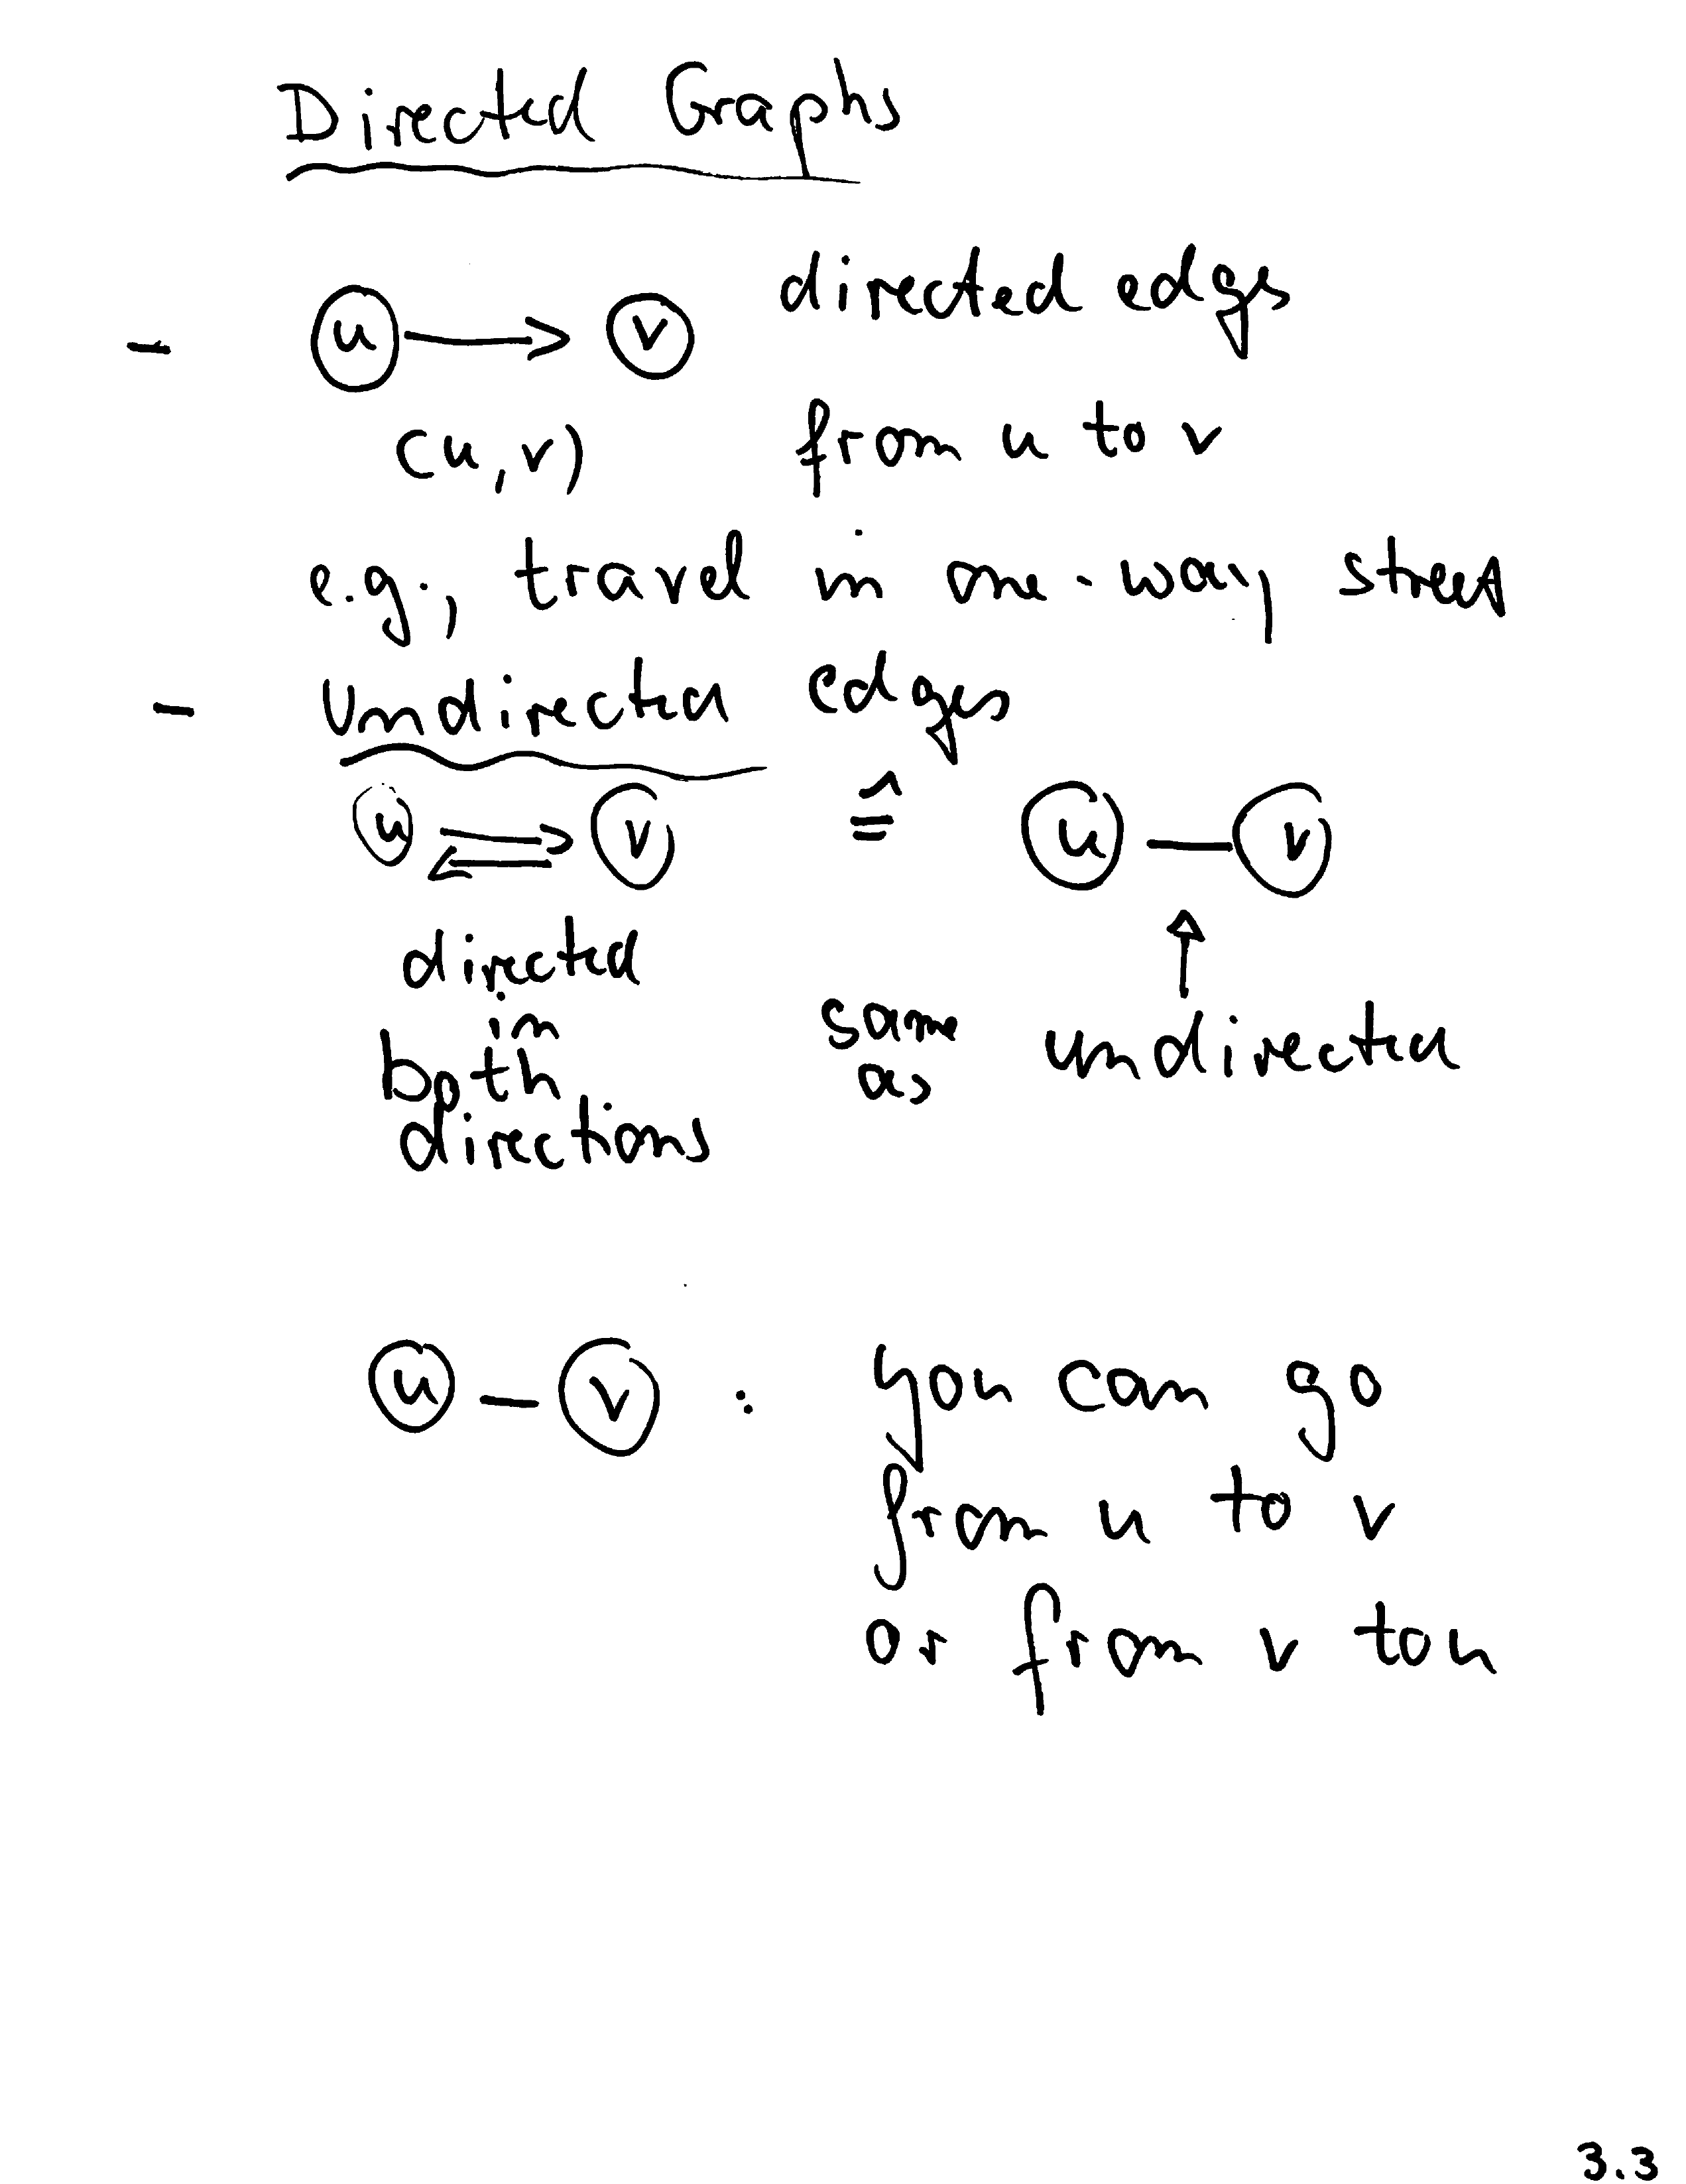 Directed Graphs
- u v directed edges
(u,v) from u to v
e.g., travel in one-way street
- Undirected edges
u v ≙ u v
directed
in
both
directions
same
as
undirected
u - v : you can go
from u to v
or from v to u
3.3